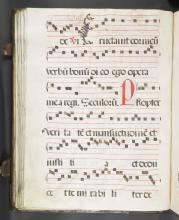 de Vi ructauit cor meū
verbū bonū di co ego opera
mea regi. Seculorū. P Ropter
veri ta tē et mansuetudinē et
iusti ti a et dedu
ce te mi rabi li ter de